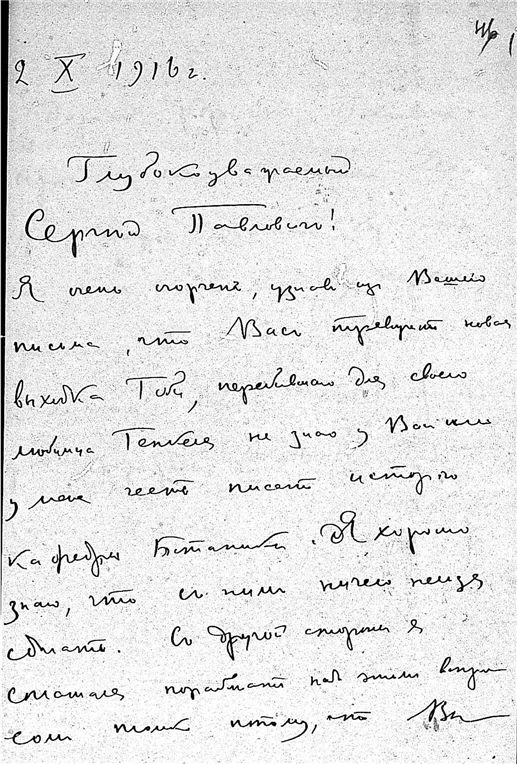 2 X 1916 г.
Глубокоуважаемый
Сергей Павлович!
Я очень огорчен, узнав из Вашего
письма, что Васъ тревожит новая
выходка Тоби, перебившаго для своего
любимца Генкеля не знаю у Вас или
у меня честь писать исторію
кафедры Ботаники. Я хорошо
знаю, что съ ним ничего нельзя
сделать. Со другой стороны я
работать над этим
если только потому, что Вы